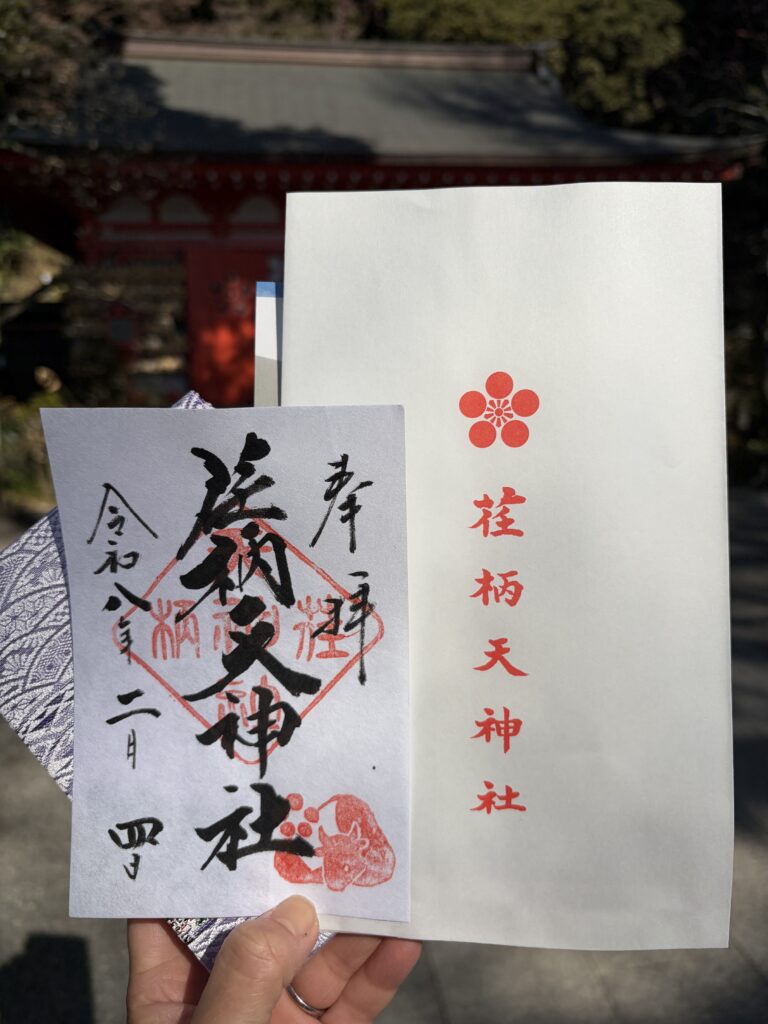 奉拝
荏柄天神社
令和八年二月四日
荏柄天神社